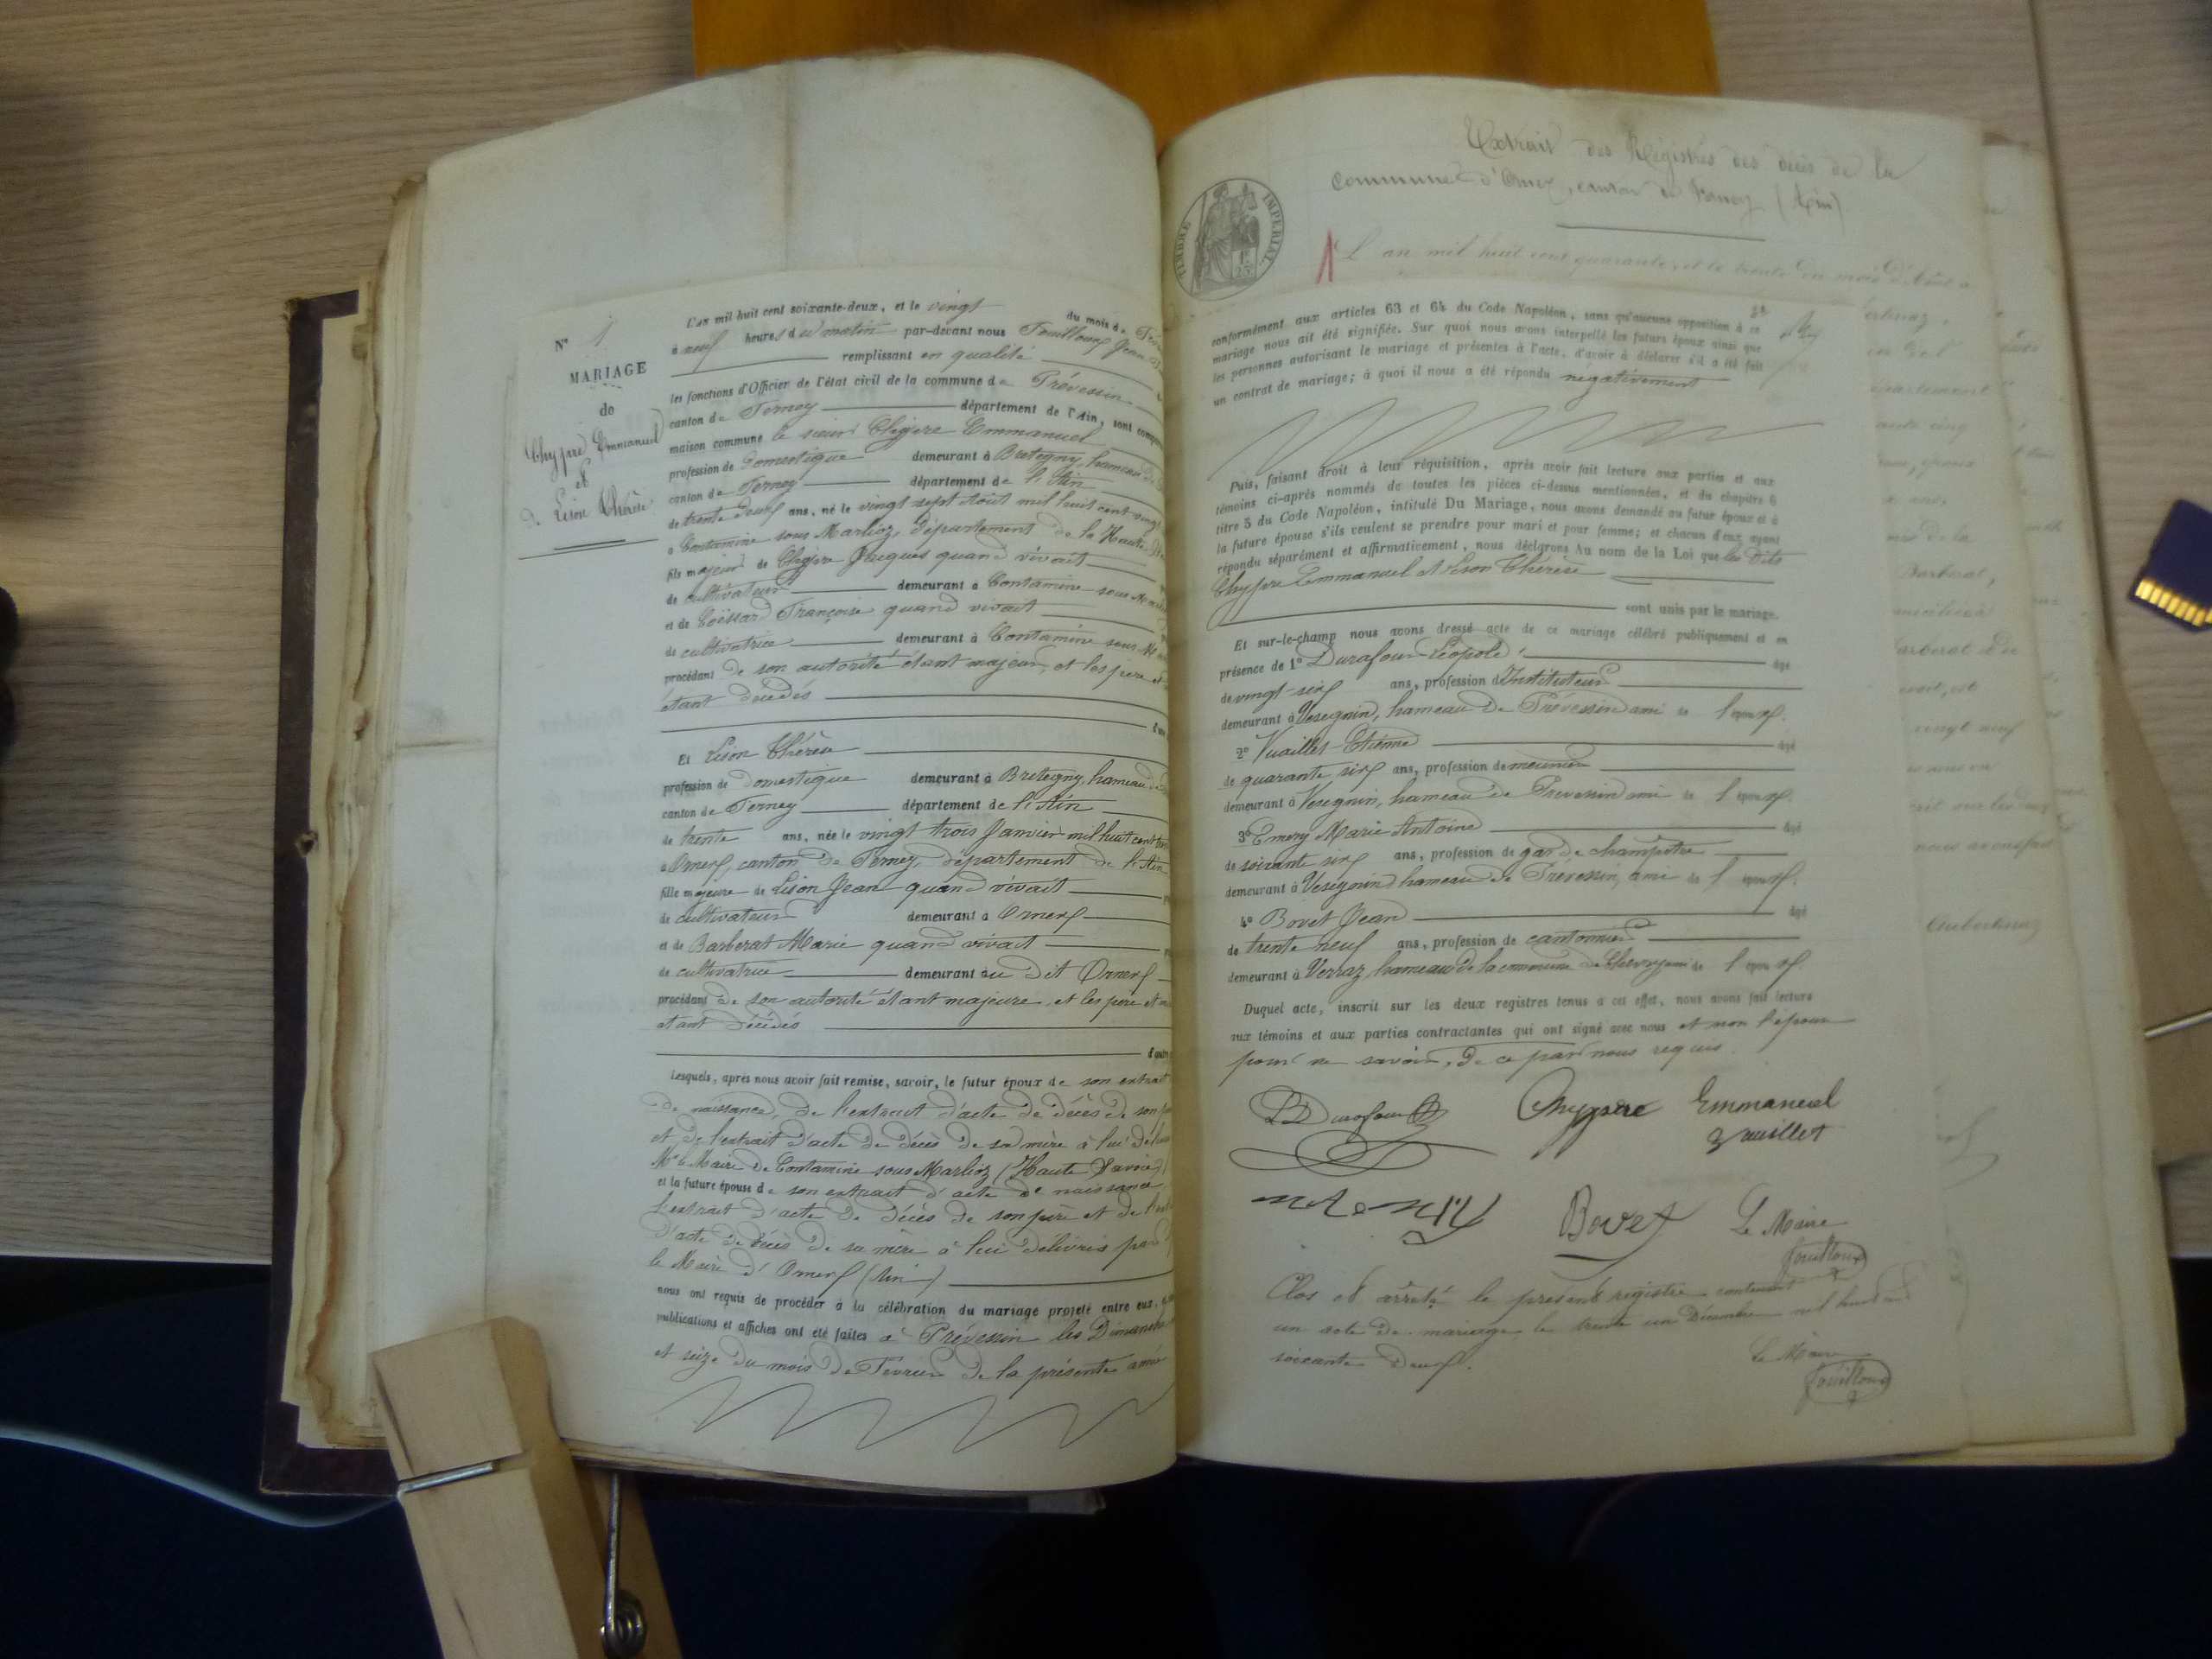 N° 1
MARIAGE
de
Chypre Emmanuel
et
de Lison Thérèse
L'an mil huit cent soixante-deux, et le vingt du mois de
à neuf heures du matin par-devant nous Fouilloux Jean
remplissant en qualité
les fonctions d'Officier de l'état civil de la commune de Prévessin
canton de Ferney département de l'Ain, sont
maison commune le sieur Chypre Emmanuel
profession de domestique demeurant à Bretegny, hameau de
canton de Ferney département de l'Ain
de trente deux ans, né le vingt sept Aout mil huit cent vingt
à Contamine sous Marlioz, département de la Haute
fils majeur de Chypre Jacques quand vivait
de cultivateur demeurant à Contamine sous
et de Françoise quand vivait
de cultivatrice demeurant à Contamine sous
procédant de son autorité étant majeur, et les père et
étant décédés
Et Lison Thérèse
profession de domestique demeurant à Bretegny, hameau de
canton de Ferney département de l'Ain
de trente ans, née le vingt trois Janvier mil huit cent
à Ornex, canton de Ferney, département de l'Ain
fille majeure de Lison Jean quand vivait
de cultivateur demeurant à Ornex
et de Barberat Marie quand vivait
de cultivatrice demeurant au dit Ornex
procédant de son autorité étant majeure, et les père et
étant décédés
Lesquels, après nous avoir fait remise, savoir, le futur époux de son extrait
de naissance, de l'extrait d'acte de décès de son
et de l'extrait d'acte de décès de sa mère à lui
Mr le Maire de Contamine sous Marlioz (Haute Savoie)
et la future épouse de son extrait d'acte de naissance
l'extrait d'acte de décès de son père et de
d'acte de décès de sa mère à lui délivrés par
le Maire d'Ornex (Ain)
nous ont requis de procéder à la célébration du mariage projeté entre eux,
publications et affiches ont été faites à Prévessin les Dimanches
et seize du mois de Février de la présente année
Extrait des Registres des décès de la
commune d'Ornex, canton de Ferney (Ain)
TIMBRE IMPERIAL
L'an mil huit cent quarante, et le trente du mois d'
conformément aux articles 63 et 64 du Code Napoléon, sans qu'aucune opposition à ce
mariage nous ait été signifiée. Sur quoi nous avons interpellé les futurs époux ainsi que
les personnes autorisant le mariage et présentes à l'acte, d'avoir à déclarer s'il a été fait
un contrat de mariage; à quoi il nous a été répondu negativement
Puis, faisant droit à leur réquisition, après avoir fait lecture aux parties et aux
témoins ci-après nommés de toutes les pièces ci-dessus mentionnées, et du chapitre 6
titre 5 du Code Napoléon, intitulé Du Mariage, nous avons demandé au futur époux et à
la future épouse s'ils veulent se prendre pour mari et pour femme; et chacun d'eux ayant
répondu séparément et affirmativement, nous déclarons Au nom de la Loi que les dits
Chypre Emmanuel et Lison Thérèse
sont unis par le mariage.
Et sur-le-champ nous avons dressé acte de ce mariage célébré publiquement et en
présence de 1° Durafour Léopold âgé
de vingt-six ans, profession d'Instituteur
demeurant à Vesegnin, hameau de Prévessin ami de l'époux.
2° Vuaillet Etienne âgé
de quarante six ans, profession de meunier
demeurant à Vesegnin, hameau de Prévessin ami de l'époux.
3° Emery Marie Antoine âgé
de soixante six ans, profession de garde champêtre
demeurant à Vesegnin hameau de Prévessin, ami de l'époux.
4° Bovet Jean âgé
de trente neuf ans, profession de cantonnier
demeurant à Verraz, hameau de la commune de Chevry ami de l'époux.
Duquel acte, inscrit sur les deux registres tenus à cet effet, nous avons fait lecture
aux témoins et aux parties contractantes qui ont signé avec nous et non l'épouse
pour ne savoir, de ce par nous requis.
LDurafour Chypre Emmanuel
vuillet
Bovet Le Maire
Fouilloux
Clos et arrêté le présent registre contenant
un acte de mariage le trente un Décembre mil huit cent
soixante deux.
Le Maire
Fouilloux